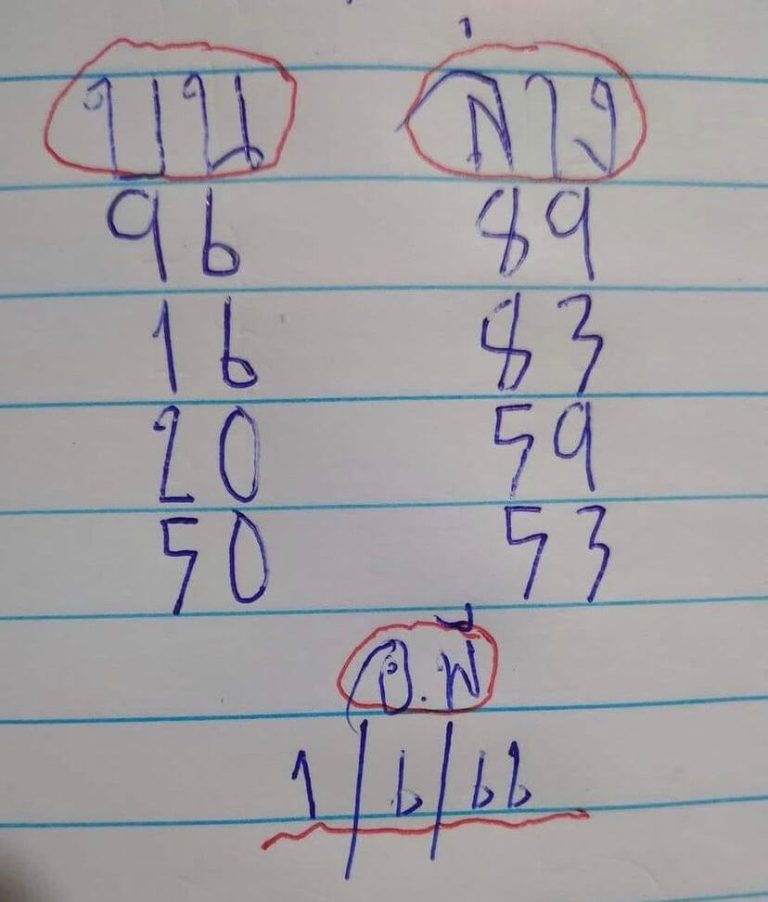 บน ล่าง
96 89
16 83
20 59
50 53
อ.พี
1/6/66